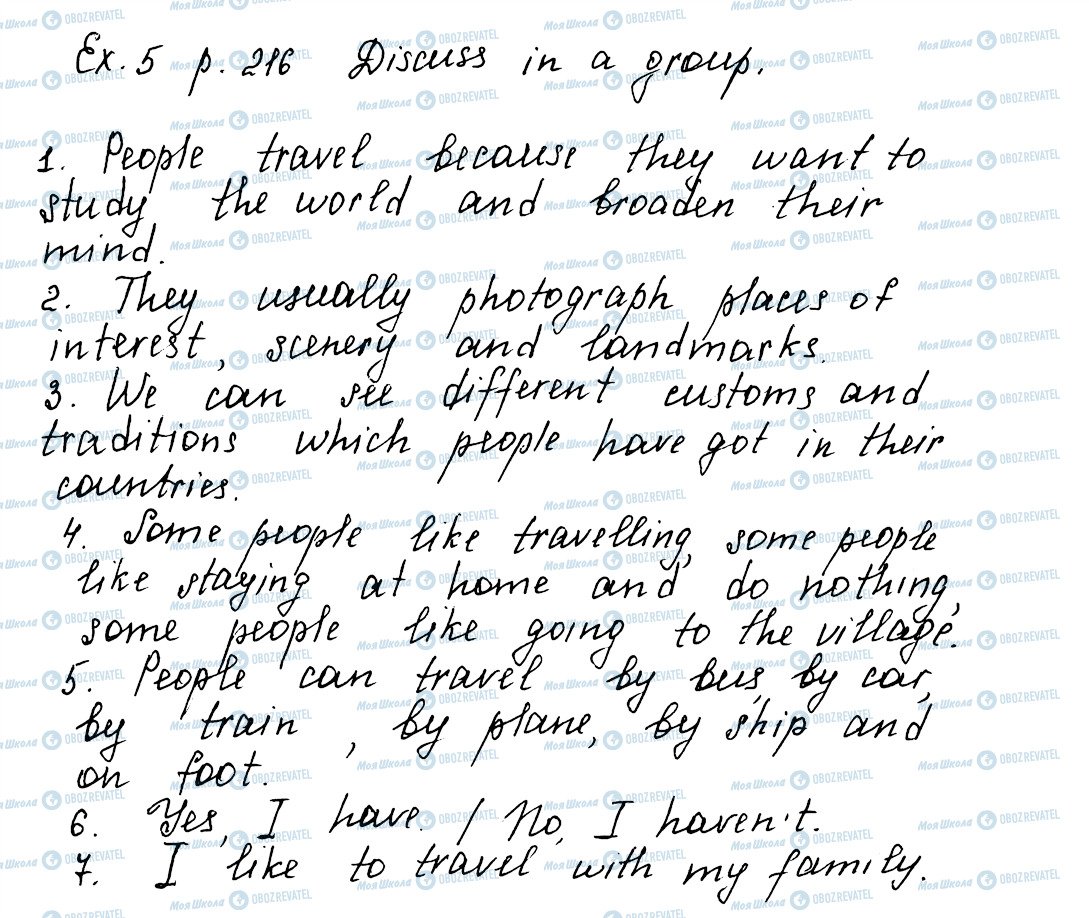 Ex. 5 p. 216 Discuss in a group.
1. People travel because they want to
study the world and broaden their
mind.
2. They usually photograph places of
interest, scenery and landmarks.
3. We can see different customs and
traditions which people have got in their
countries.
4. Some people like travelling, some people
like staying at home and do nothing,
some people like going to the village.
5. People can travel by bus, by car,
by train, by plane, by ship and
on foot.
6. Yes, I have. / No, I haven't.
7. I like to travel with my family.